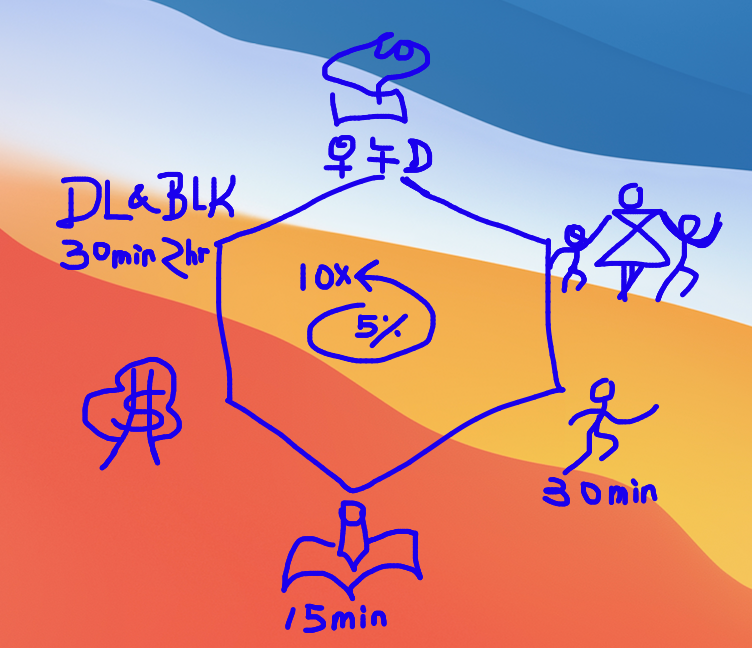 CO
우 午 D
DL & BLK
30min 2hr
10X
5%
$
30min
15min